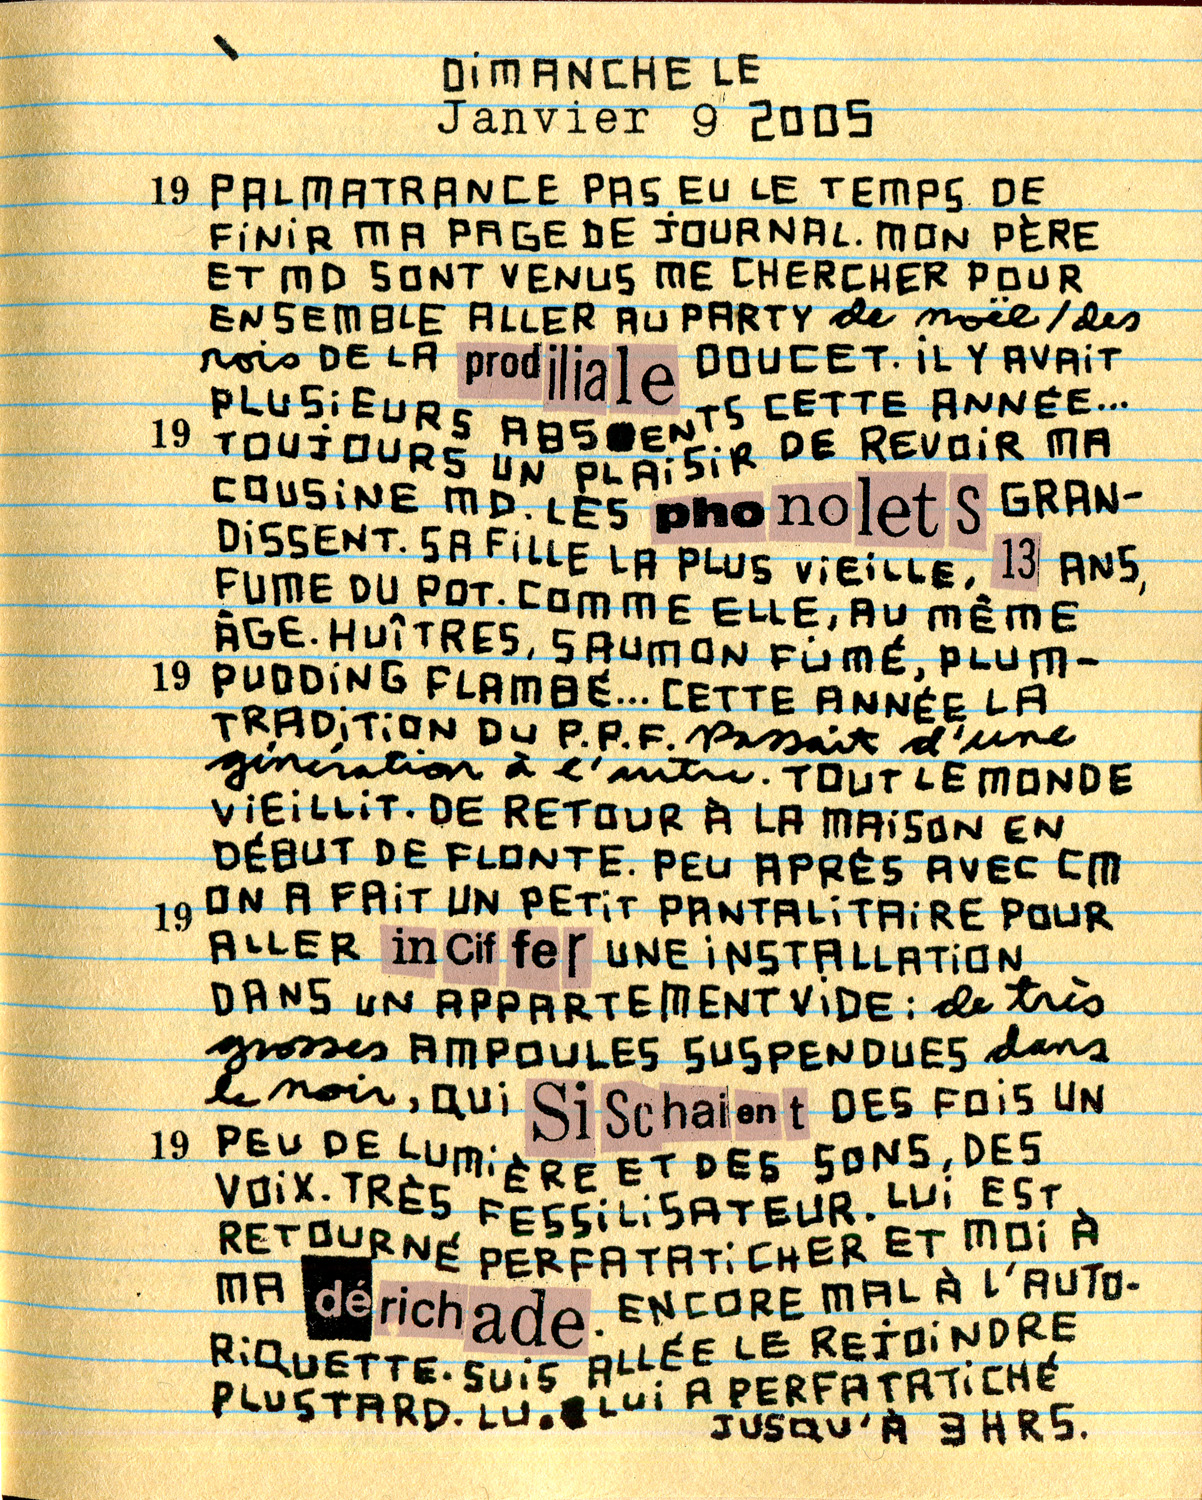 DIMANCHE LE
Janvier 9 2005
19 PALMATRANCE PAS EU LE TEMPS DE
FINIR MA PAGE DE JOURNAL. MON PÈRE
ET MD SONT VENUS ME CHERCHER POUR
ENSEMBLE ALLER AU PARTY de noël/des
rois DE LA prodiliale DOUCET. IL Y AVAIT
PLUSIEURS ABSENTS CETTE ANNÉE...
19 TOUJOURS UN PLAISIR DE REVOIR MA
COUSINE MD. LES phonolets GRAN-
DISSENT. SA FILLE LA PLUS VIEILLE, 13 ANS,
FUME DU POT. COMME ELLE, AU MÊME
ÂGE. HUÎTRES, SAUMON FUMÉ, PLUM-
19 PUDDING FLAMBÉ... CETTE ANNÉE LA
TRADITION DU P.P.F. Passait d'une
génération à l'autre. TOUT LE MONDE
VIEILLIT. DE RETOUR À LA MAISON EN
DÉBUT DE FLONTE. PEU APRÈS AVEC CM
19 ON A FAIT UN PETIT PANTALITAIRE POUR
ALLER inCiffer UNE INSTALLATION
DANS UN APPARTEMENT VIDE: de très
grosses AMPOULES SUSPENDUES dans
le noir, QUI SiSchaient DES FOIS UN
19 PEU DE LUMIÈRE ET DES SONS, DES
VOIX. TRÈS FESSILISATEUR. LUI EST
RETOURNÉ PERFATATICHER ET MOI À
MA dérichade. ENCORE MAL À L'AUTO-
RIQUETTE. SUIS ALLÉE LE REJOINDRE
PLUS TARD. LU. LUI A PERFATATICHÉ
JUSQU'À 3 HRS.